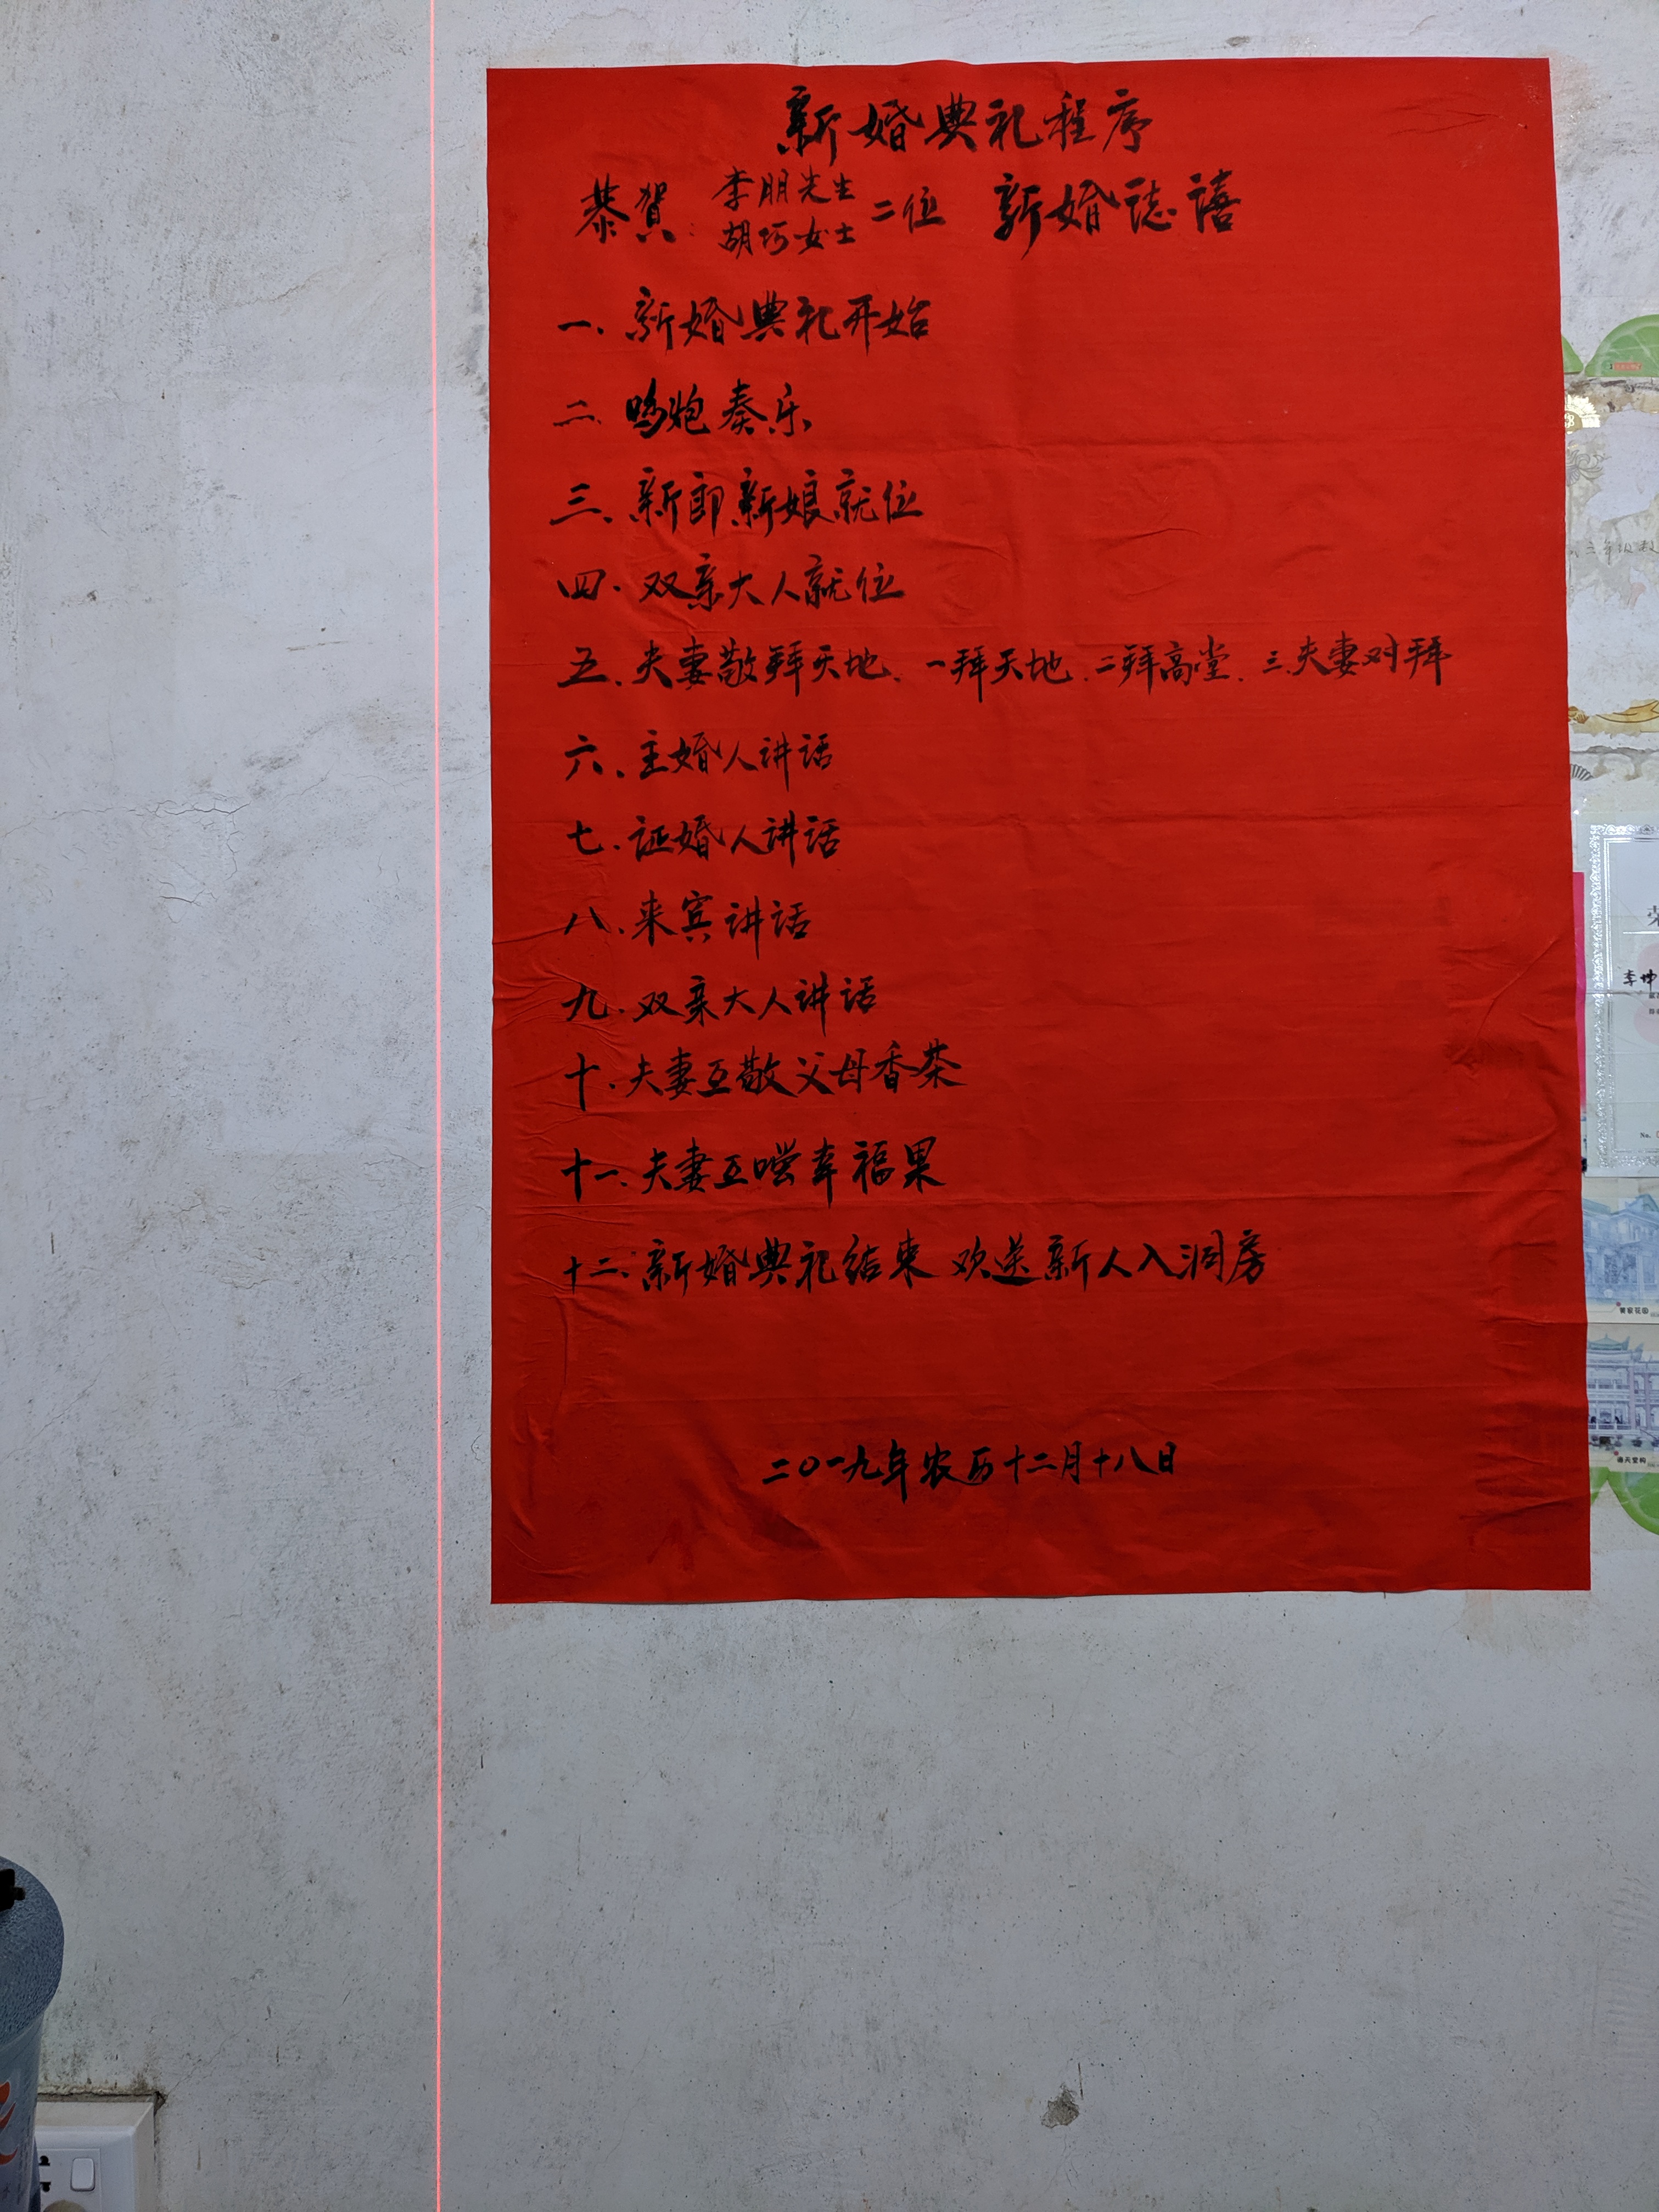 新婚典礼程序
恭贺: 李朋先生 二位 新婚誌禧
胡巧女士
一、新婚典礼开始
二、鸣炮奏乐
三、新郎新娘就位
四、双亲大人就位
五、夫妻敬拜天地、一拜天地、二拜高堂、三、夫妻对拜
六、主婚人讲话
七、证婚人讲话
八、来宾讲话
九、双亲大人讲话
十、夫妻互敬父母香茶
十一、夫妻互嚐幸福果
十二、新婚典礼结束 欢送新人入洞房
二〇一九年农历十二月十八日
李坤
No.